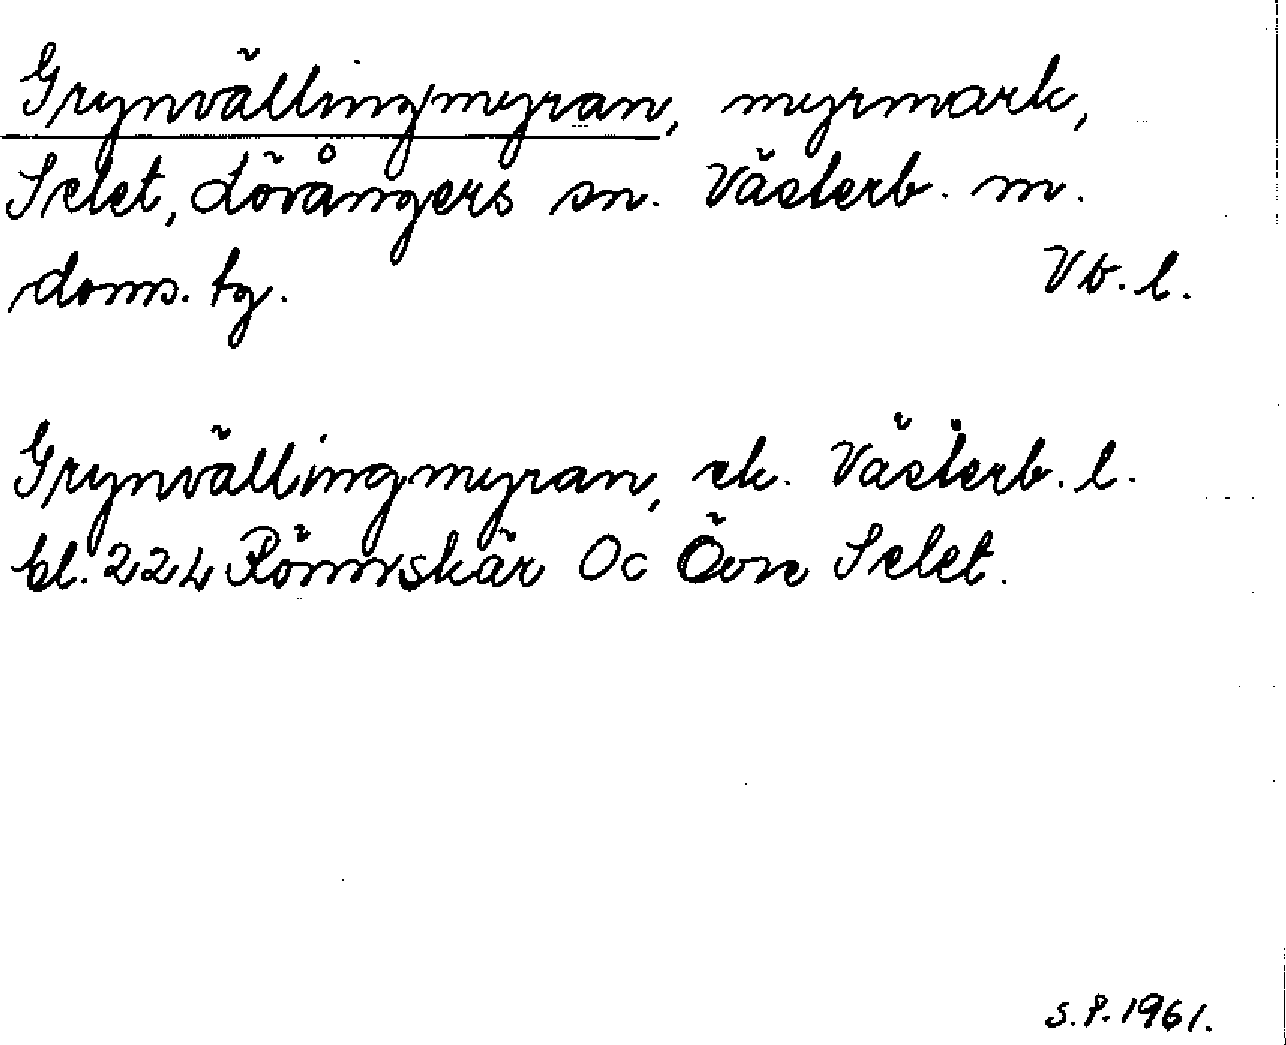 Grynvällingmyran, myrmark,
Selet, Lövångers sn. Västerb. m.
doms. tg. Vb. l.
Grynvällingmyran, ek. Västerb. l.
bl. 224 Rönnskär Oc Övre Selet.
S.P. 1961.